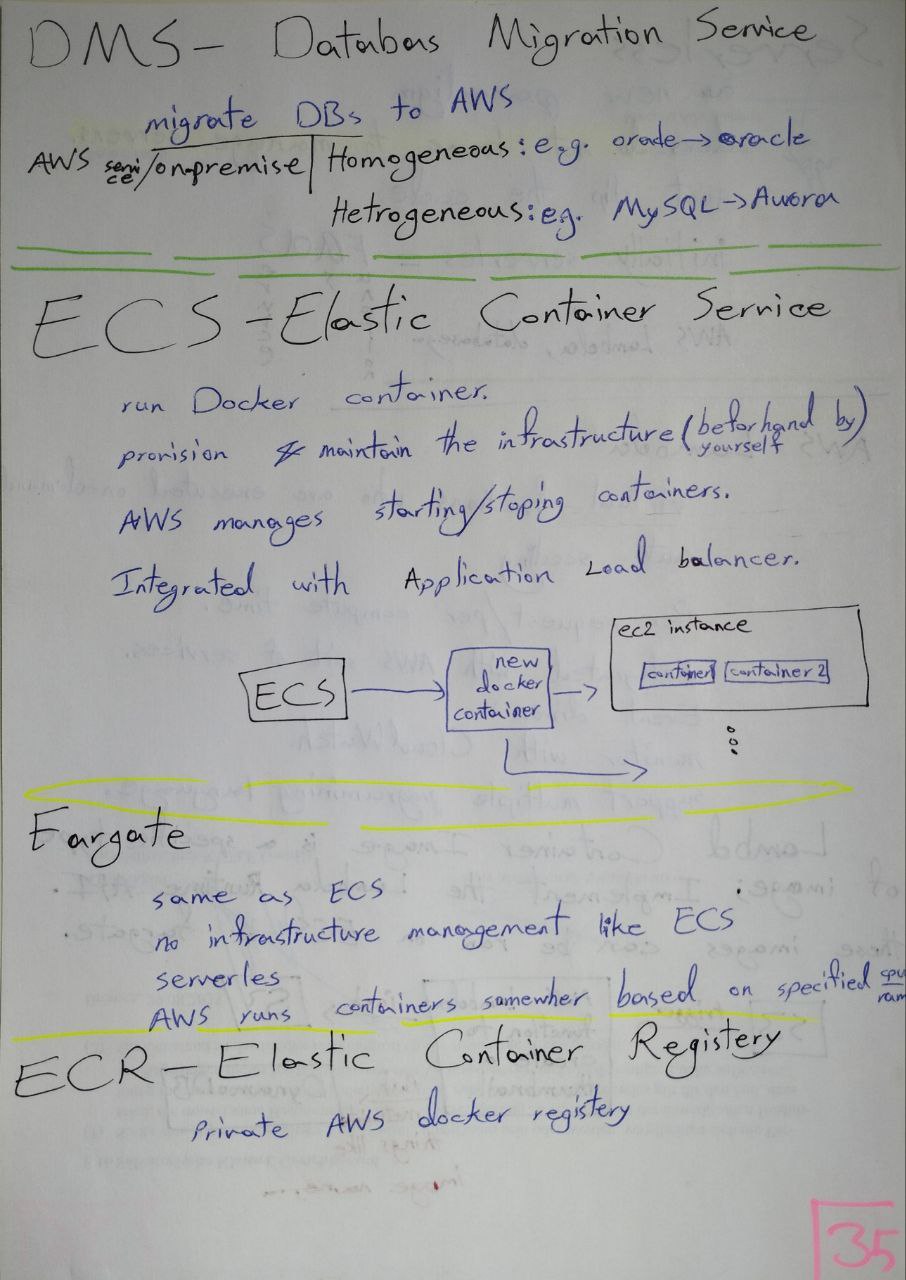 DMS - Databas Migration Service
migrate DBs to AWS
AWS service/on-premise | Homogeneous: e.g. oracle → oracle
Hetrogeneous: eg. MySQL → Aurora
ECS - Elastic Container Service
run Docker container.
provision & maintain the infrastructure (beforhand by yourself)
AWS manages starting/stoping containers.
Integrated with Application Load balancer.
ec2 instance
ECS → new docker container →
container container 2
Fargate
same as ECS
no infrastructure management like ECS
serverles
AWS runs containers somewher based on specified cpu ram
ECR - Elastic Container Registery
Private AWS docker registery
35